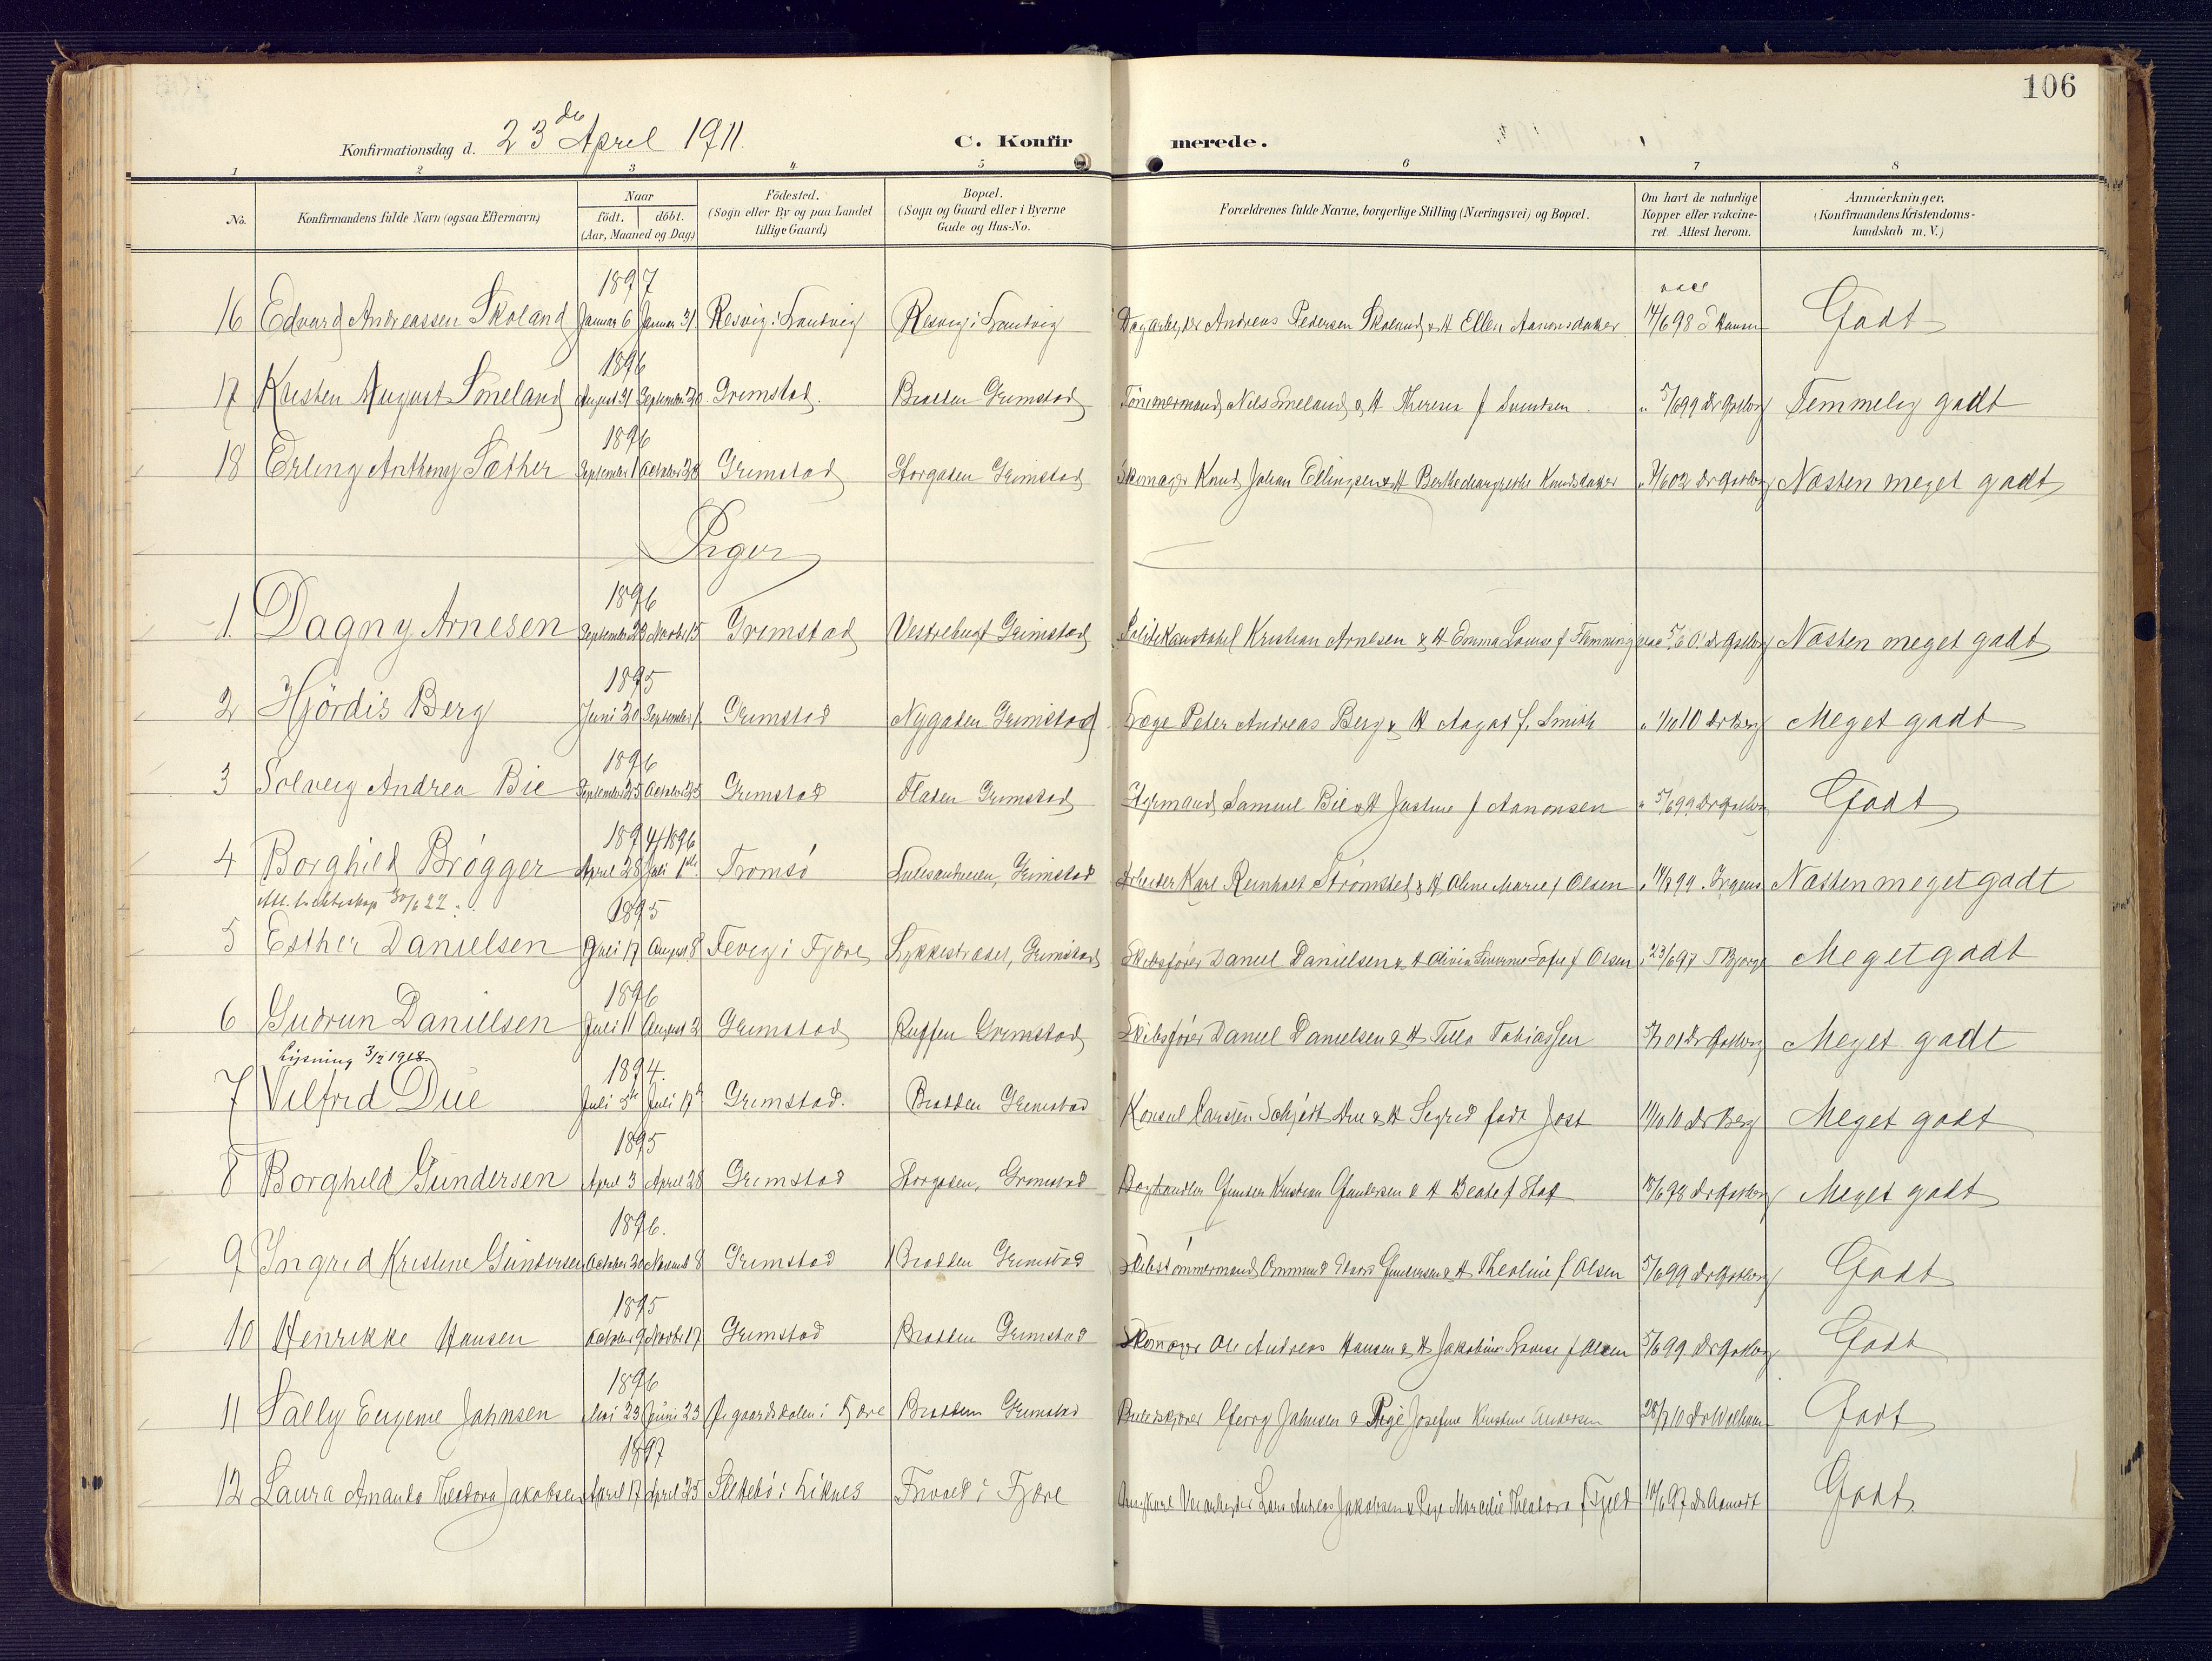 106
Konfirmationsdag d. 23de April 1911. C. Konfirmerede.
1 2 3 4 5 6 7 8
No. Konfirmandens fulde Navn (ogsaa Efternavn) Naar födt. döbt. (Aar, Maaned og Dag) Födested. (Sogn eller By og paa Landet tillige Gaard) Bopæl. (Sogn og Gaard eller i Byerne Gade og Hus-No. Forældrenes fulde Navne, borgerlige Stilling (Næringsvei) og Bopæl. Om havt de naturlige Kopper eller vakcineret. Attest herom. Anmærkninger, (Konfirmandens Kristendomskundskab m. V.)
1897 vacc
16 Edvard Andreassen Skoland Januar 6 Januar 31 Resvig i Landvig Resvig i Landvig Dagarbeider Andreas Pedersen Skoland & H Ellen Aanonsdatter 14/6 98 Hansen Godt
1896
17 Kristen August Smeland August 31 September 20 Grimstad. Bratten Grimstad Tömmermand Nils Smeland & H Theresa f Svendsen " 5/6 99 Dr Temmelig godt
1896
18 Erling Anthony Sæther September 1 October 28 Grimstad Storgaden Grimstad Skomager Knud Johan Ellingsen & H Berthe Margrethe Knudsdatter " 9/6 02 Dr Næsten meget godt
Piger
1896
1. Dagny Arnesen September 23 Novbr 15 Grimstad Vestrebugt Grimstad Politikonstabel Kristian Arnesen & H Emma Louise f Flemming vac Dr Næsten meget godt
1895
2 Hjördis Berg Juni 20 September 1 Grimstad Nygaden Grimstad Læge Peter Andreas Berg & H Aagot f. Smith " 10 Dr Berg Meget godt
1896
3 Solveig Andrea Bie September 25 October 25 Grimstad Fladen Grimstad Styrmand Samuel Bie & H Justine f Aanonsen " 5/6 99 Dr Godt
1894 1896
4 Borghild Brøgger April 28 Juli 1ste Tromsö Grimstad Arbeider Karl Reinholt Strømsted & H Oline Marie f Olsen " 99 Irgens Næsten meget godt
Att. t. ekteskap 30/6 22.
1895
5 Esther Danielsen Juli 17 August 8 Fevig i Fjære Lykkestrædet, Grimstad Skibsfører Daniel Danielsen & H Olivia Severine Sofie f Olsen " 23/6 97 Meget godt
1896
6 Gudrun Danielsen Juli 11 August 2 Grimstad Grimstad Skibsfører Daniel Danielsen & H Tilla Tobiassen 01 Dr Meget godt
Lysning 3/2 1918
1894.
7 Vilfrid Due Juli 5te Juli 17de Grimstad. Bratten Grimstad Konsul Carsten Schjødt Due & H Sigrid født Jost 10 Dr Berg Meget godt
1895
8 Borghild Gundersen April 3 April 28 Grimstad Storgaden, Grimstad Boghandler Gunder Kristian Gundersen & H Beate f Staf 98 Dr Meget godt
1896.
9 Ingrid Kristine Gundersen October 20 Novemb 8 Grimstad Bratten Grimstad Skibstömmermand Ommund Gundersen & H Theoline f Olsen 5/6 99 Dr Godt
1895
10 Henrikke Hansen October 9 Novbr 17 Grimstad Bratten Grimstad Skomager Ole Andreas Hansen & H Jakobine Lovise f Olsen 5/6 99 Dr Godt
1896
11 Sally Eugenie Jahnsen Mai 23 Juni 23 i Fjære Bratten Grimstad Georg Jahnsen & Pige Josefine Kristine Andersen 28/ 10 Dr Godt
1897
12 Laura Amanda Theodora Jakobsen April 17 April 25 i Liknes Frivold i Fjære Ungkarl Veiarbeider Lars Andreas Jakobsen & Pige Theodora f Fjeld 97 Dr Godt